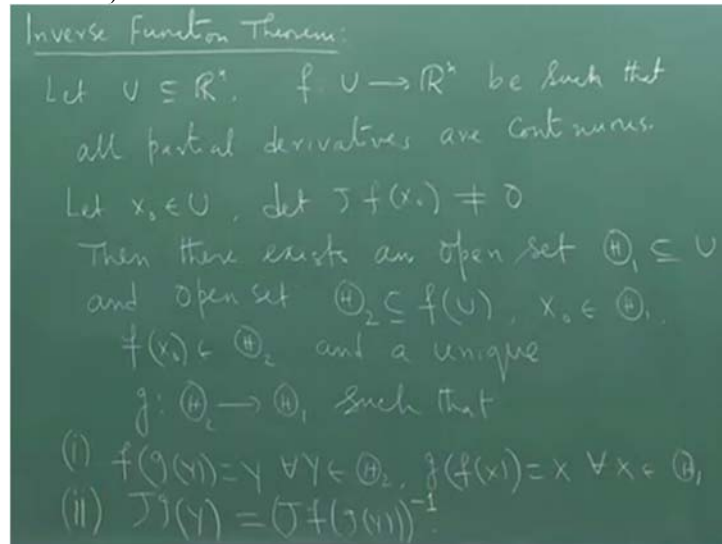 Inverse Function Theorem:
Let U ⊆ ℝⁿ, f U → ℝⁿ be such that
all partial derivatives are continuous.
Let x₀ ∈ U, det J f(x₀) ≠ 0
Then there exists an open set Ⓗ₁ ⊆ U
and open set Ⓗ₂ ⊆ f(U), x₀ ∈ Ⓗ₁,
f(x₀) ∈ Ⓗ₂ and a unique
g: Ⓗ₂ → Ⓗ₁ such that
(i) f(g(y)) = y ∀ y ∈ Ⓗ₂, g(f(x)) = x ∀ x ∈ Ⓗ₁
(ii) Jg(y) = (Jf(g(y)))⁻¹.